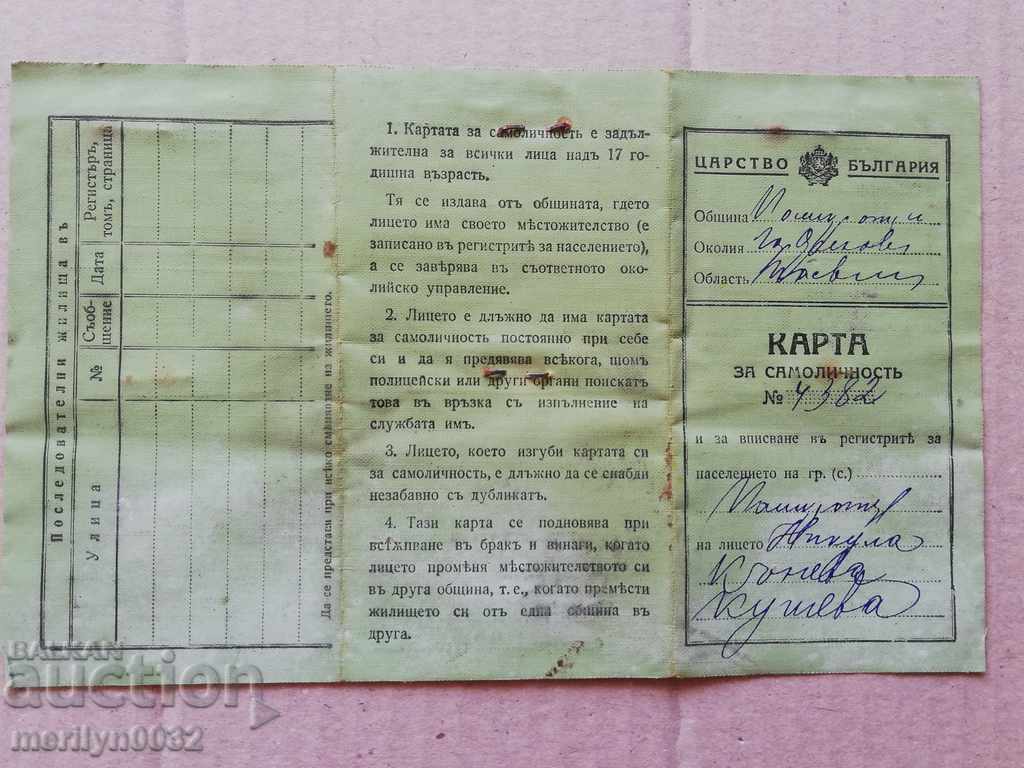 Последователни жилища въ
Улица
№
Съоб-
щение
Дата
Регистъръ,
томъ, страница
Да се представя при всѣко смѣняне на жилището.
1. Картата за самоличность е задъл-
жителна за всички лица надъ 17 го-
дишна възрасть.
Тя се издава отъ общината, гдето
лицето има своето мѣстожителство (е
записано въ регистритѣ за населението),
а се завѣрява въ съответното око-
лийско управление.
2. Лицето е длъжно да има картата
за самоличность постоянно при себе
си и да я предявява всѣкога, щомъ
полицейски или други органи поискатъ
това въ връзка съ изпълнение на
службата имъ.
3. Лицето, което изгуби картата си
за самоличность, е длъжно да се снабди
незабавно съ дубликатъ.
4. Тази карта се подновява при
встѫпване въ бракъ и винаги, когато
лицето промѣня мѣстожителството си
въ друга община, т. е., когато премѣсти
жилището си отъ една община въ
друга.
ЦАРСТВО БЪЛГАРИЯ
Община
Околия
Область Плѣвенъ
КАРТА
ЗА САМОЛИЧНОСТЬ
№ 4382
и за вписване въ регистритѣ за
населението на гр. (с.)
на лицето Никула
Конева
Кушева
BALKAN
auction
merilyn0032